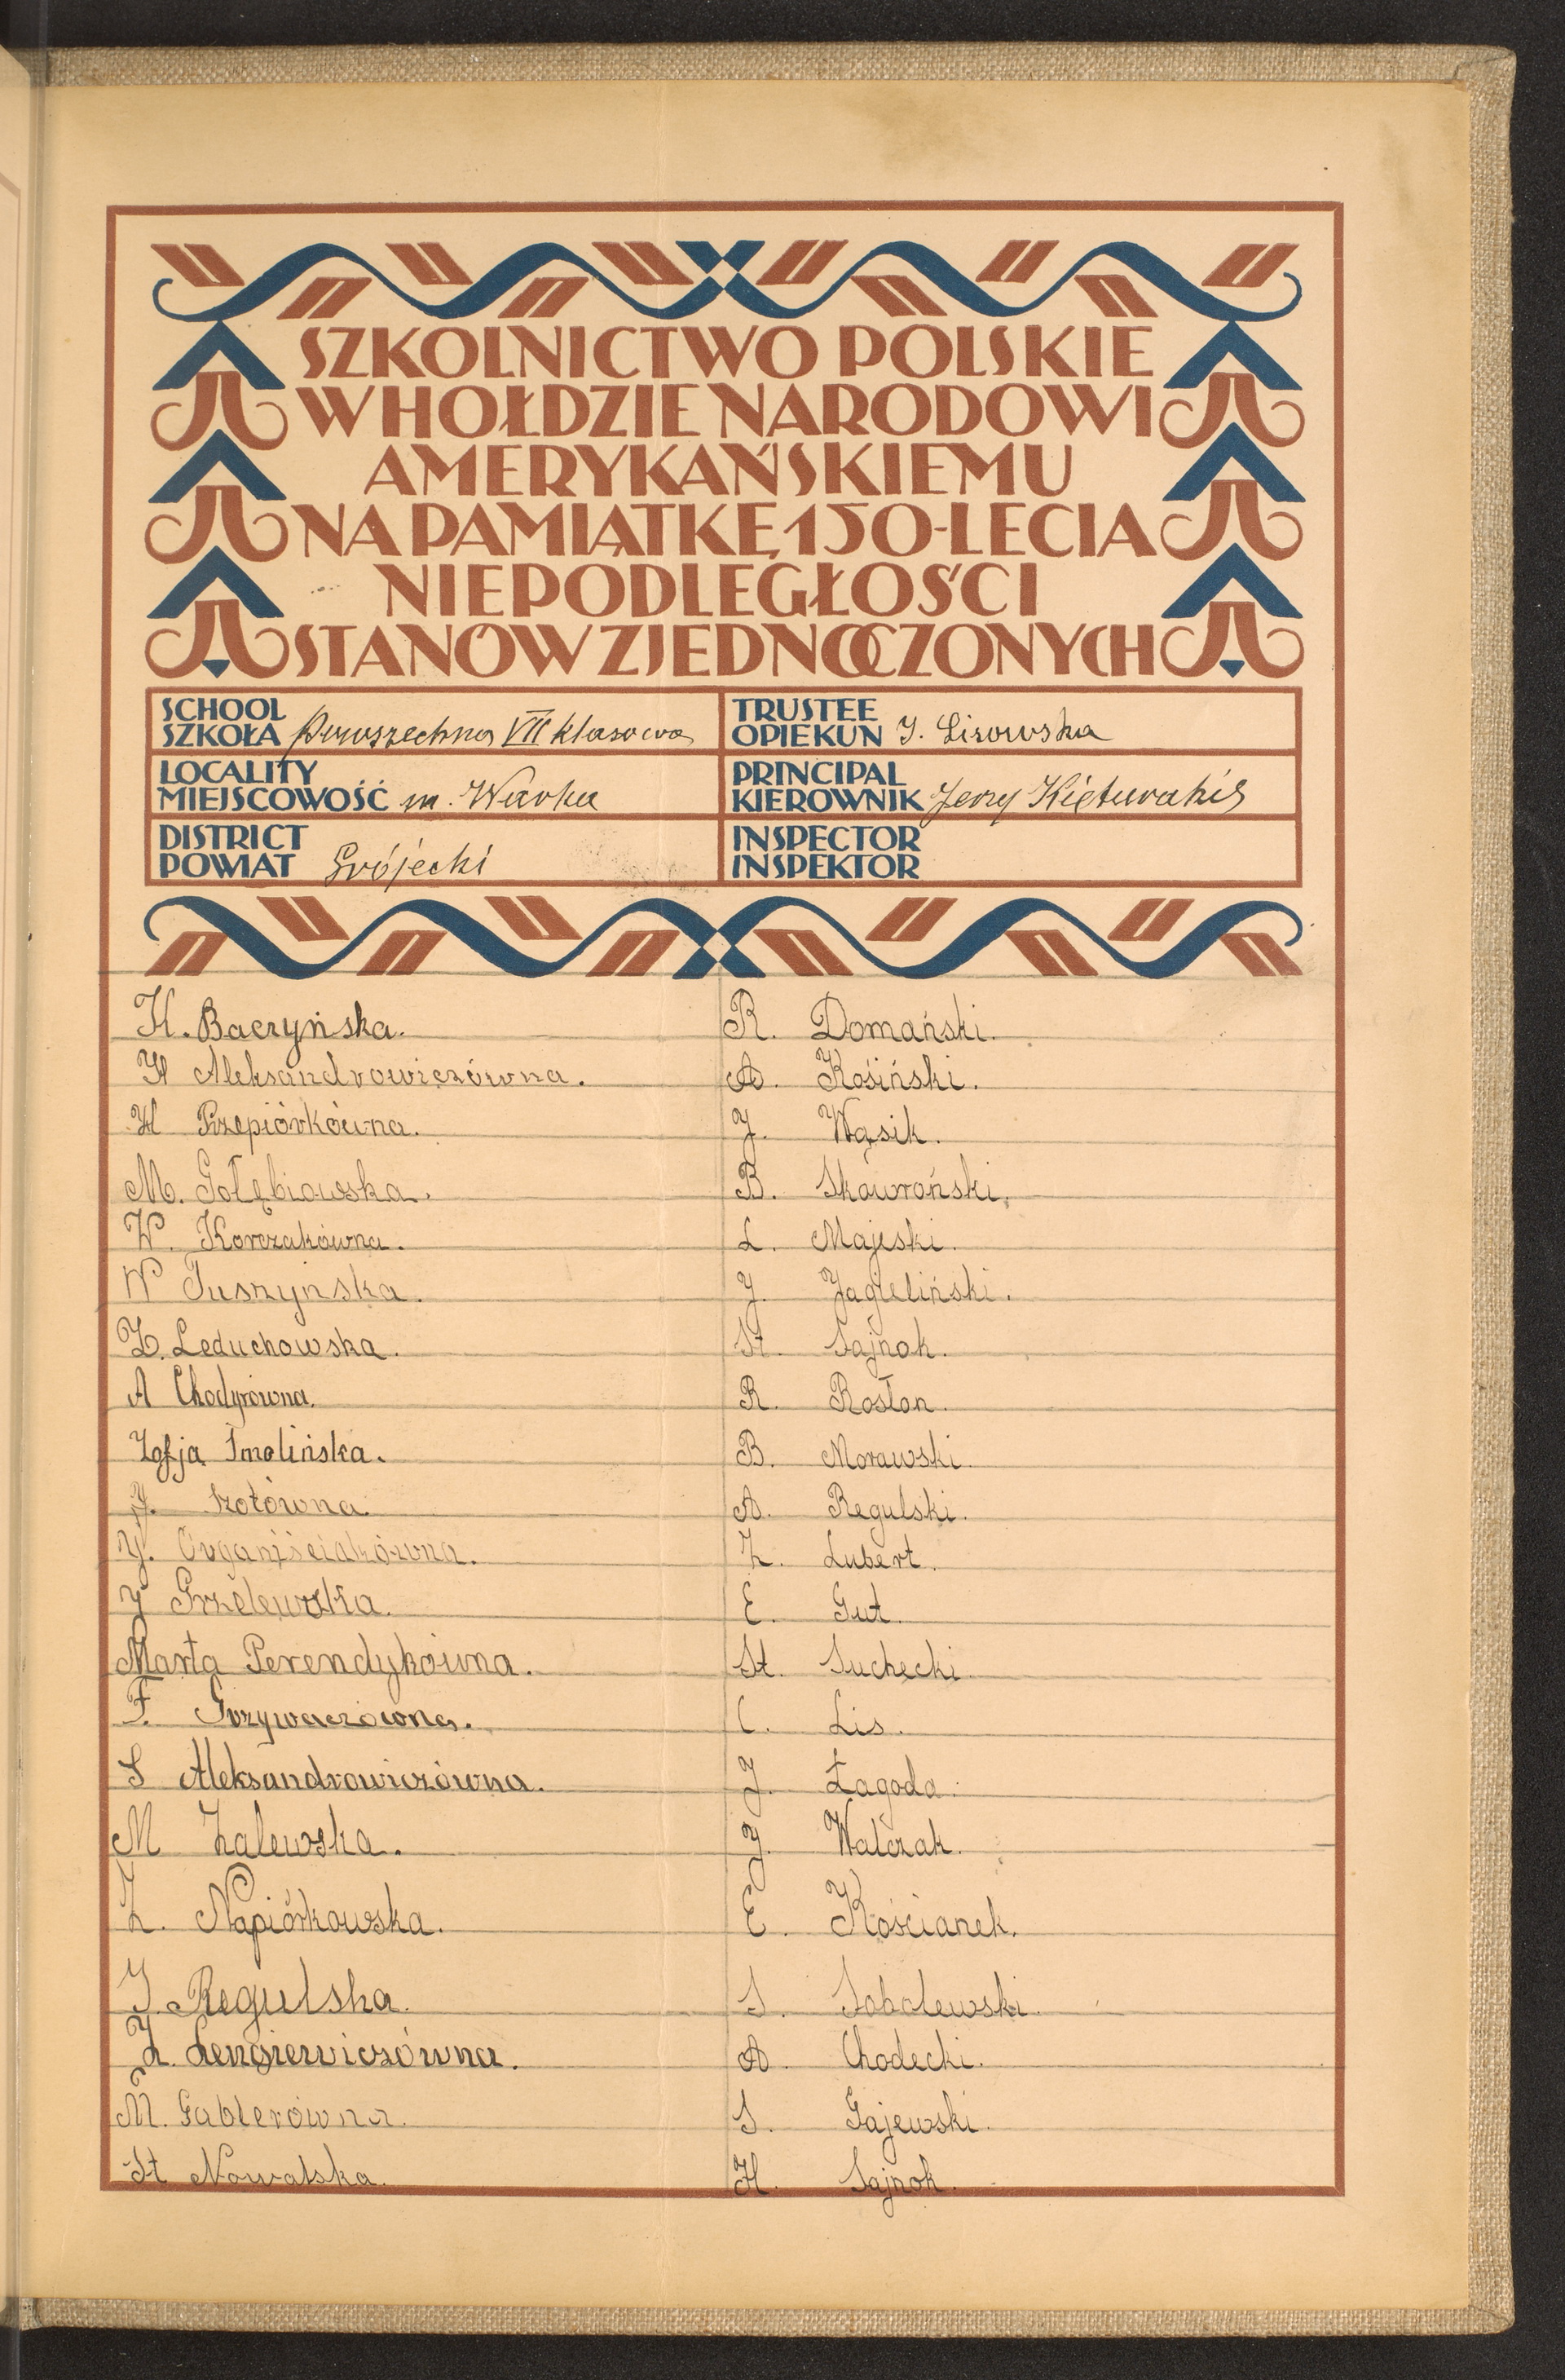 SZKOLNICTWO POLSKIE
W HOŁDZIE NARODOWI
AMERYKAŃSKIEMU
NA PAMIĄTKĘ 150-LECIA
NIEPODLEGŁOŚCI
STANÓW ZJEDNOCZONYCH
SCHOOL
SZKOŁA Powszechna VII klasowa
TRUSTEE
OPIEKUN J. Lisowska
LOCALITY
MIEJSCOWOŚĆ m. Warka
PRINCIPAL
KIEROWNIK Jerzy
DISTRICT
POWIAT Grójecki
INSPECTOR
INSPEKTOR
H. Baczyńska.
H Aleksandrowiczówna.
H Przepiórkówna.
M. Gołębiowska.
W. Korczakówna.
W Tuszyńska.
Z. Leduchowska.
A Chodyrówna.
Zofja Smolińska.
J. Szotówna.
J. Organiściakówna.
J Grzelewska.
Marta Perendykówna.
F. Grzywaczówna.
S Aleksandrowiczówna.
M Zalewska.
Z. Napiórkowska.
J. Regulska.
Z. Lengiewiczówna.
M. Gablerówna.
St Nowalska.
R. Domański.
A. Kosiński.
J. Wąsik.
B. Skowroński.
L. Majeski.
J. Jagieliński.
St. Sajnok.
R. Rosłon.
B. Morawski.
A. Regulski.
Z. Lubert.
E. Gut.
St. Suchecki.
C. Lis.
J. Łagoda.
J. Walczak.
E. Kościanek.
S. Sobolewski.
A. Chodecki.
S. Gajewski.
H. Sajnok.